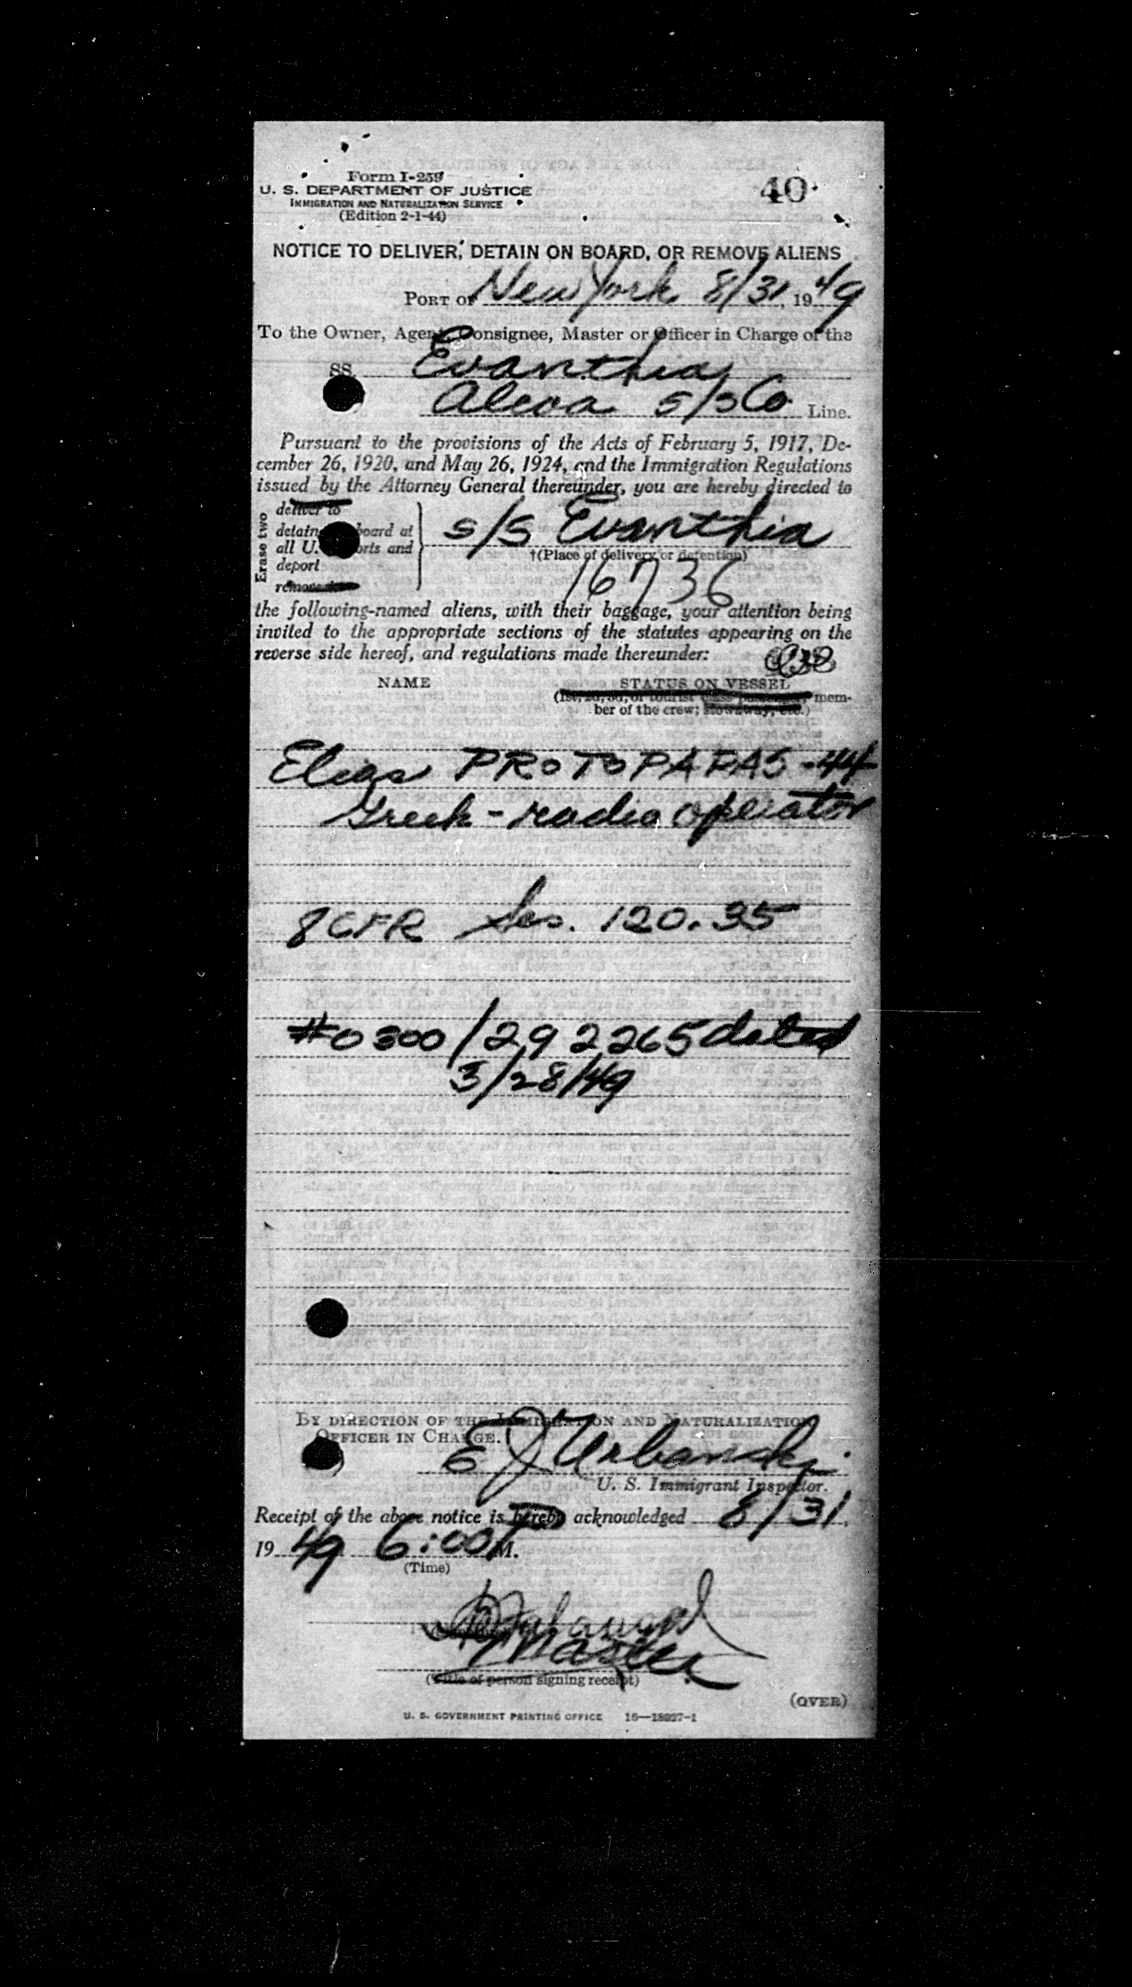 Form I-259
40
U. S. DEPARTMENT OF JUSTICE
IMMIGRATION AND NATURALIZATION SERVICE
(Edition 2-1-44)
NOTICE TO DELIVER, DETAIN ON BOARD, OR REMOVE ALIENS
PORT OF New York 8/31, 1949
To the Owner, Agent, Consignee, Master or Officer in Charge of the
SS. Evanthia
Alcoa S/S Co Line.
Pursuant to the provisions of the Acts of February 5, 1917, De-
cember 26, 1920, and May 26, 1924, and the Immigration Regulations
issued by the Attorney General thereunder, you are hereby directed to
Erase two
deliver to
detain board at
all U. orts and
deport
remove
S/S Evanthia
†(Place of delivery or detention)
16736
the following-named aliens, with their baggage, your attention being
invited to the appropriate sections of the statutes appearing on the
reverse side hereof, and regulations made thereunder:
NAME STATUS ON VESSEL
(1st, 2d, 3d, or tourist class passenger, mem-
ber of the crew; stowaway, etc.)
Elias PROTOPAPAS - 44
Greek - radio operator
8 CFR Sec. 120.35
#0300/292265 dated
3/28/49
BY DIRECTION OF THE IMMIGRATION AND NATURALIZATION
OFFICER IN CHARGE.
E J Urbanski
U. S. Immigrant Inspector.
Receipt of the above notice is hereby acknowledged 8/31,
1949 6:00 P M.
(Time)
Master
(Title of person signing receipt)
(OVER)
U. S. GOVERNMENT PRINTING OFFICE 16—18927-1